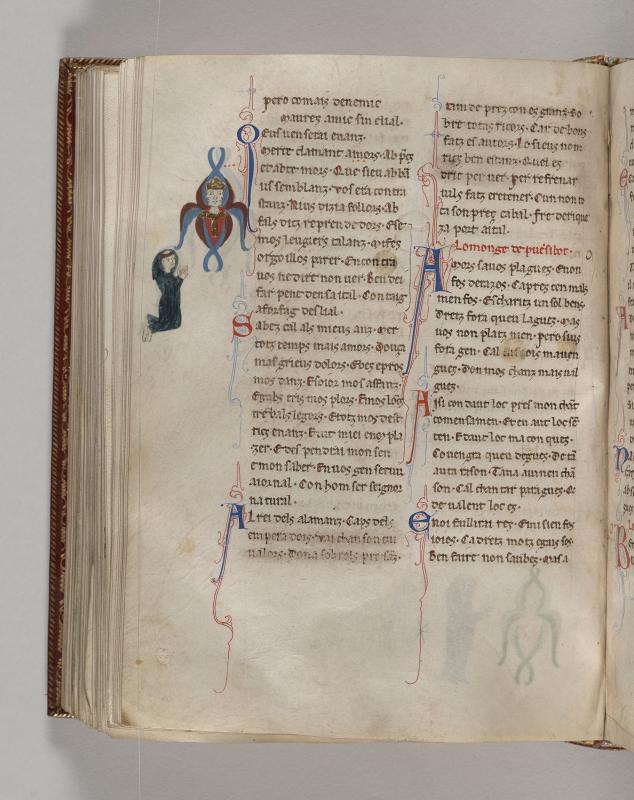 pero comais denemic
maures amic sin clial.
Deus uenserai enanz.
Merce clamant amors. Ab pes
us semblanz. Vos era contra
stanz. Aius dizia follors. Ab
fals ditz reprendedors. Ese
mos leugiers talanz. Mifes
orgoillos parer. Encontra
uos nedire non uer. Ben dei
far penedensa ital. Con taig
aforfag deslial.
Sabetz cil als mieus anz. Mer
totz temps mais amors. Douza
mas grieus dolors. Ebes e pros
mos danz. Esoior mos affanz.
Egabs eris mos plors. Emos lőcs
trebals legiers. Etotz mos dest
rics enanz. Eluz miei enoi pla
zer. Edes pendrai mon sen
e mon saber. Enuos gen seruir
aiornal. Con hom ser seignor
natural.
Al rei dels alamanz. Caps dels
emperadors. Vai chanson cui
ualors. Dona sobrels presanz.
tam de pretz con es granz. So
bre totas ricors. Car debons
fatz es autors. Lo sieus nom
rics ben estanz.
per refrenar
auls fatz eretener. Con non ta
ta son prez cabal. Fre derique
za port aital.
Lo monge de puesibot.
Amors sauos plagues. Enon
fos derazos. Capres cen mals
men fos. Escharitz un sol bens.
Dretz fora quen laques. Mas
uos non platz men. pero sius
fora gen. Cal mauen
gues. Don mos chanz mais ual
gues.
Aisi con daut loc pres mon chāt
comensamen. Eren aut loc sē
ten. E daut loc ma con ques.
Couengra quen degues. De tā
auta razon. Tan auinen chā
son. Cal chantar paragues. Or
de ualent loc es.
Enoi faillira res. Si ni sien fos
ioios. Ca dretz motz egais sos.
Ben faire non saubes. Mas a